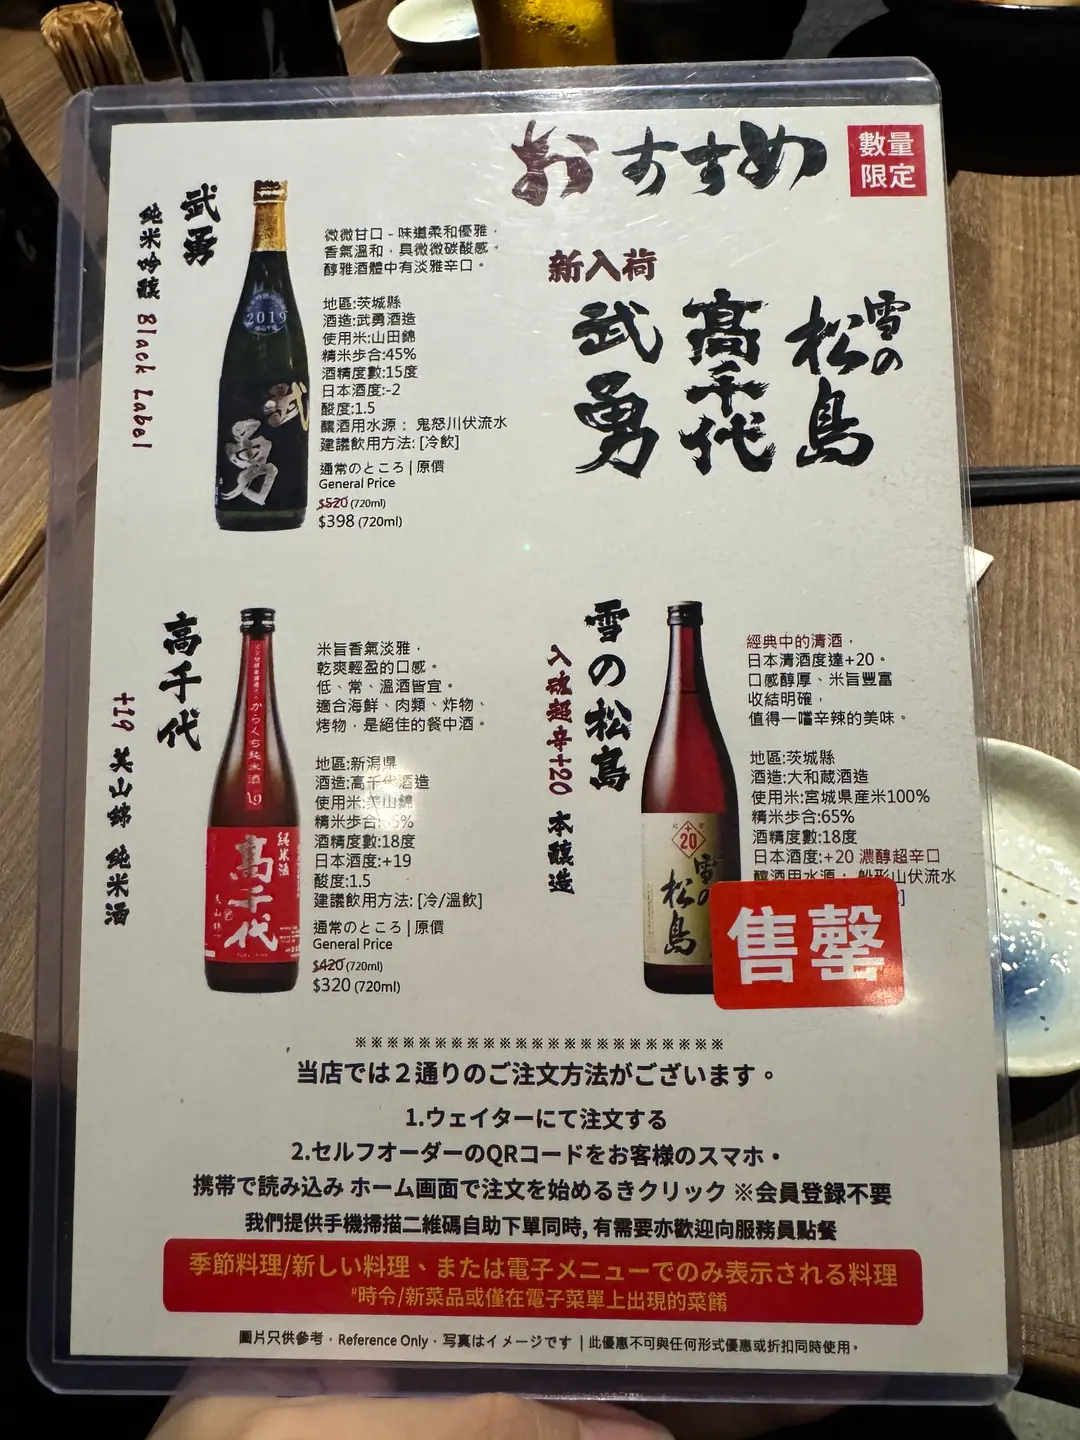 おすすめ
數量
限定
新入荷
武勇
高千代
雪の
松島
武勇
純米吟醸 Black Label
2019
武勇
微微甘口 - 味道柔和優雅，
香氣溫和，具微微碳酸感。
醇雅酒體中有淡雅辛口。
地區:茨城縣
酒造:武勇酒造
使用米:山田錦
精米步合:45%
酒精度數:15度
日本酒度:-2
酸度:1.5
釀酒用水源： 鬼怒川伏流水
建議飲用方法: [冷飲]
通常のところ | 原價
General Price
$520 (720ml)
$398 (720ml)
高千代
+19 美山錦 純米酒
からくち純米酒
19
純米酒
高千代
美山錦
米旨香氣淡雅，
乾爽輕盈的口感。
低、常、溫酒皆宜。
適合海鮮、肉類、炸物、
烤物，是絕佳的餐中酒。
地區:新潟県
酒造:高千代酒造
使用米:美山錦
精米步合:
酒精度數:18度
日本酒度:+19
酸度:1.5
建議飲用方法: [冷/溫飲]
通常のところ | 原價
General Price
$420 (720ml)
$320 (720ml)
雪の松島
入魂超辛+20 本醸造
+20
雪の
松島
經典中的清酒，
日本清酒度達+20。
口感醇厚、米旨豐富
收結明確，
值得一嚐辛辣的美味。
地區:茨城縣
酒造:大和蔵酒造
使用米:宮城県産米100%
精米步合:65%
酒精度數:18度
日本酒度:+20 濃醇超辛口
釀酒用水源： 船形山伏流水
售罄
※※※※※※※※※※※※※※※※※※※※※※※
当店では２通りのご注文方法がございます。
1.ウェイターにて注文する
2.セルフオーダーのQRコードをお客様のスマホ・
携帯で読み込み ホーム画面で注文を始めるきクリック ※会員登録不要
我們提供手機掃描二維碼自助下單同時, 有需要亦歡迎向服務員點餐
季節料理/新しい料理、または電子メニューでのみ表示される料理
#時令/新菜品或僅在電子菜單上出現的菜餚
圖片只供參考・Reference Only・写真はイメージです | 此優惠不可與任何形式優惠或折扣同時使用。